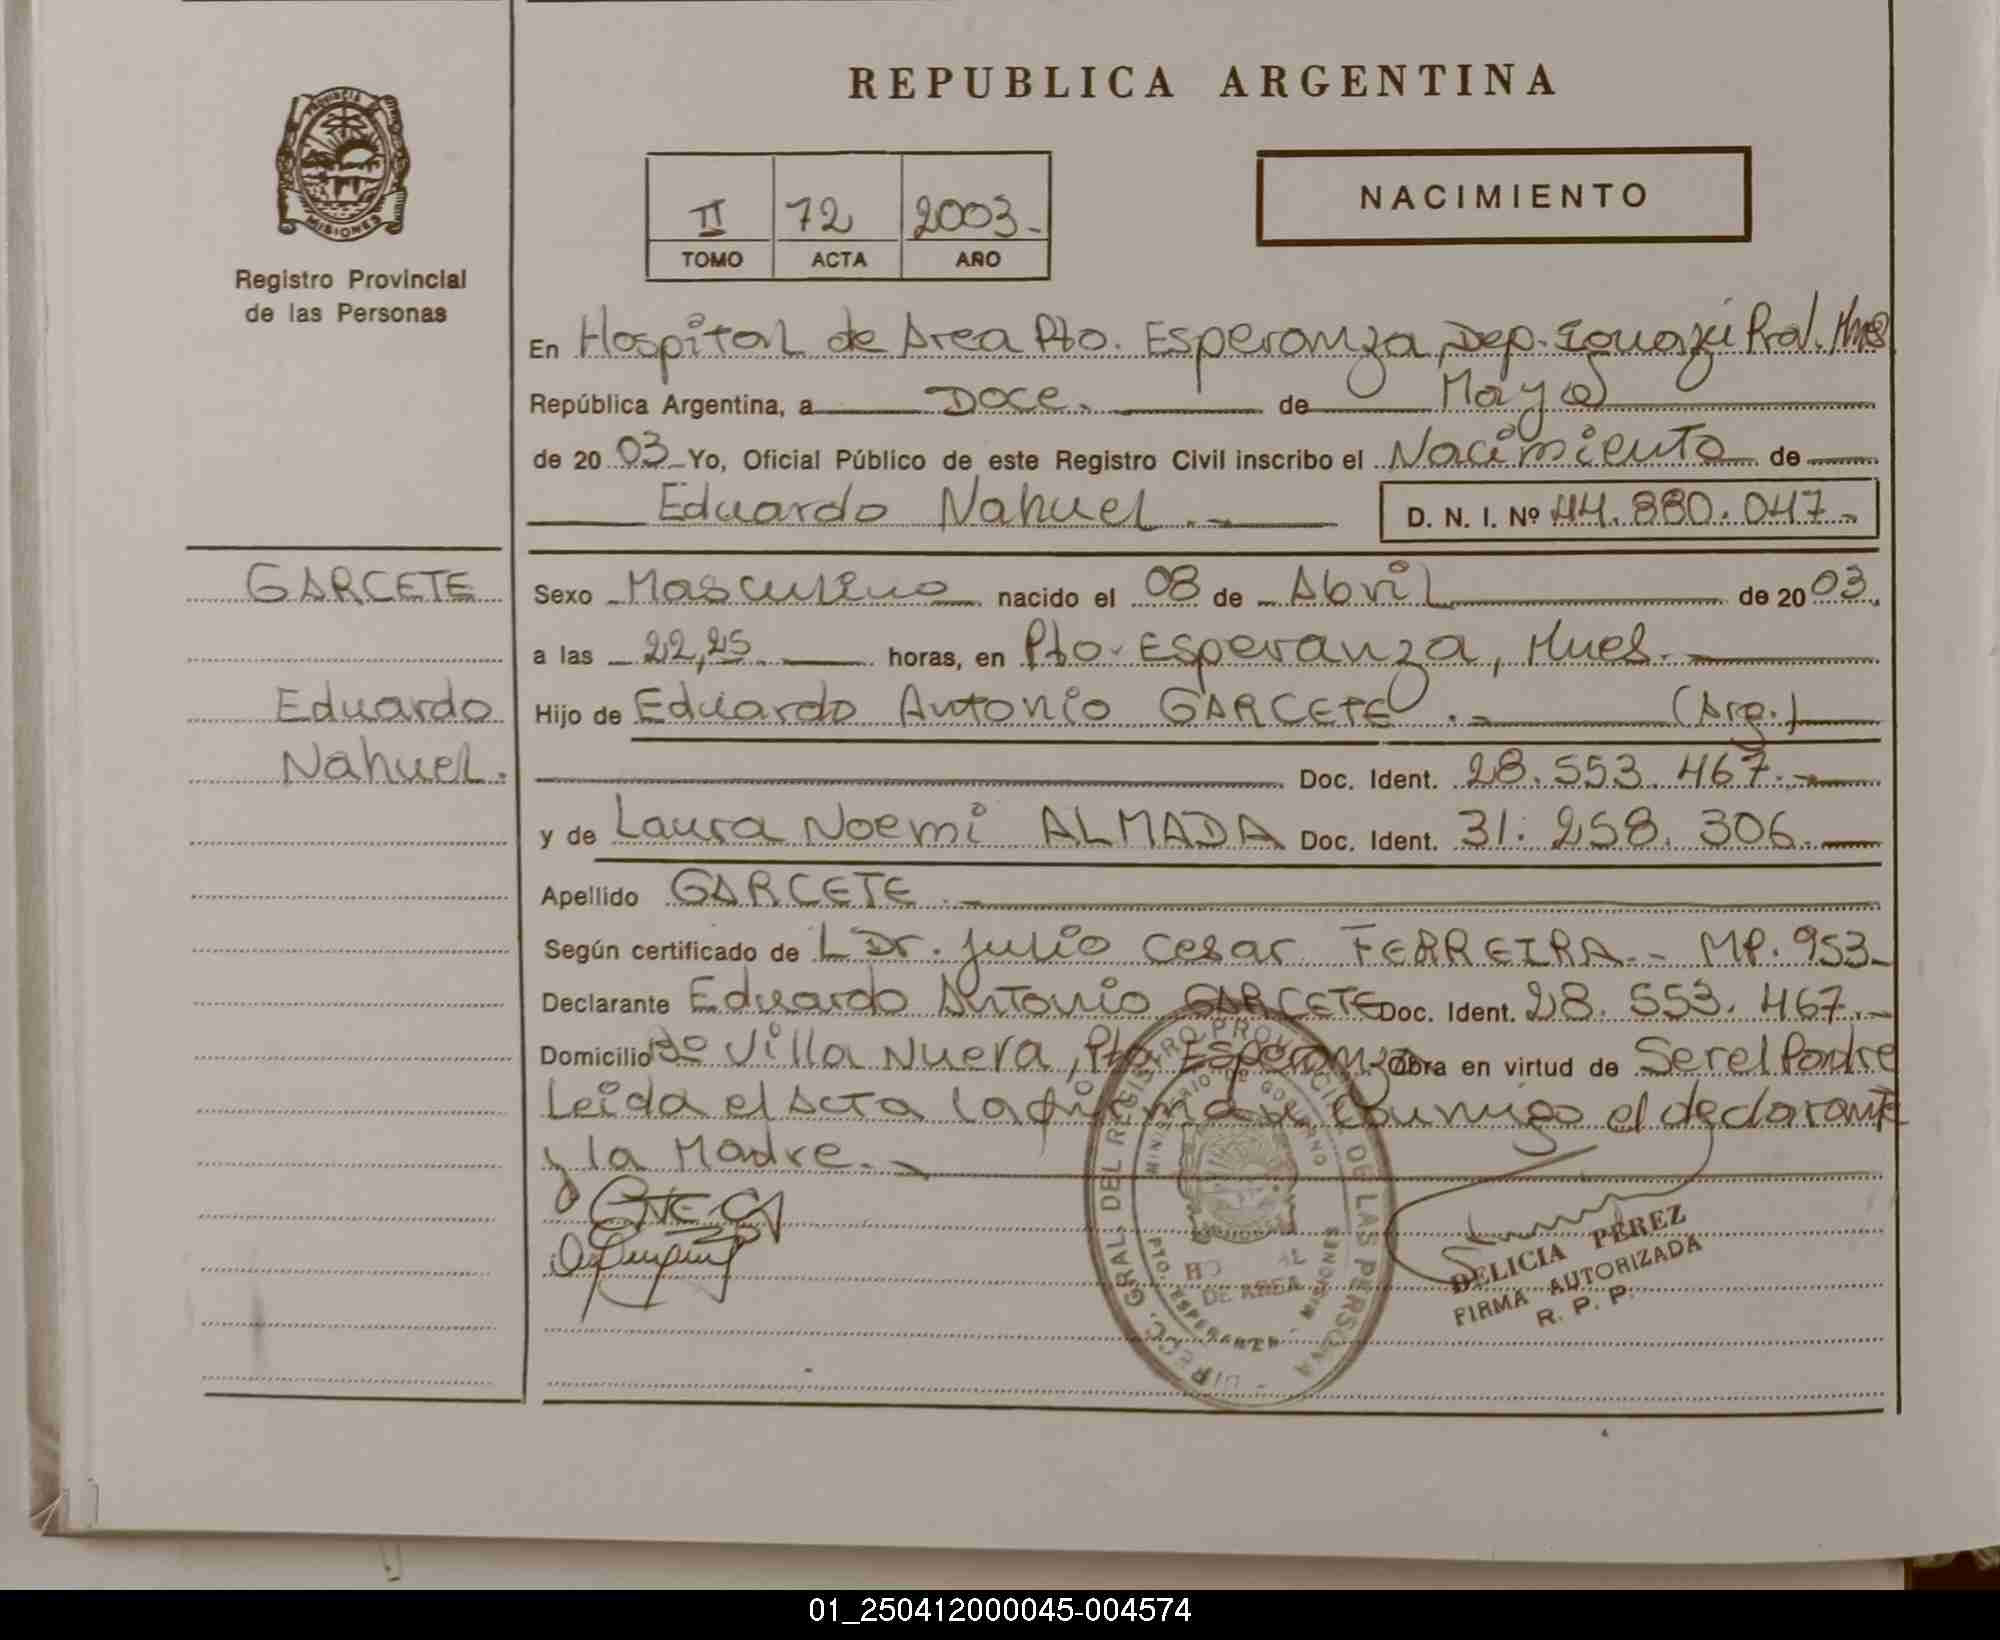 REPUBLICA ARGENTINA
PROVINCIA
MISIONES
Registro Provincial
de las Personas
II 72 2003.-
TOMO ACTA AÑO
NACIMIENTO
En Hospital de Area Pto. Esperanza, Dep. Iguazú Prov. Mnes
República Argentina, a Doce. de Mayo
de 2003 Yo, Oficial Público de este Registro Civil inscribo el Nacimiento de
Eduardo Nahuel.- D. N. I. Nº 44.880.047.-
GARCETE
Eduardo
Nahuel.
Sexo Masculino nacido el 08 de Abril de 2003
a las 22,25 horas, en Pto. Esperanza, Mnes.
Hijo de Eduardo Antonio GARCETE.- (Arg.)
Doc. Ident. 28.553.467.-
y de Laura Noemi ALMADA Doc. Ident. 31.258.306.
Apellido GARCETE.-
Según certificado de L Dr. Julio Cesar FERREIRA.- MP. 953-
Declarante Eduardo Antonio GARCETE Doc. Ident. 28.553.467.-
Domicilio Bº Villa Nueva, Pto. Esperanza Obra en virtud de Ser el Padre
Leida el Acta la firman conmigo el declarante
y la Madre.-
GRAL. DEL REGISTRO PROVINCIAL DE LAS PERSONAS
MINISTERIO DE GOBIERNO
DE AREA
PTO. ESPERANZA
DELICIA PEREZ
FIRMA AUTORIZADA
R. P. P.
01_250412000045-004574